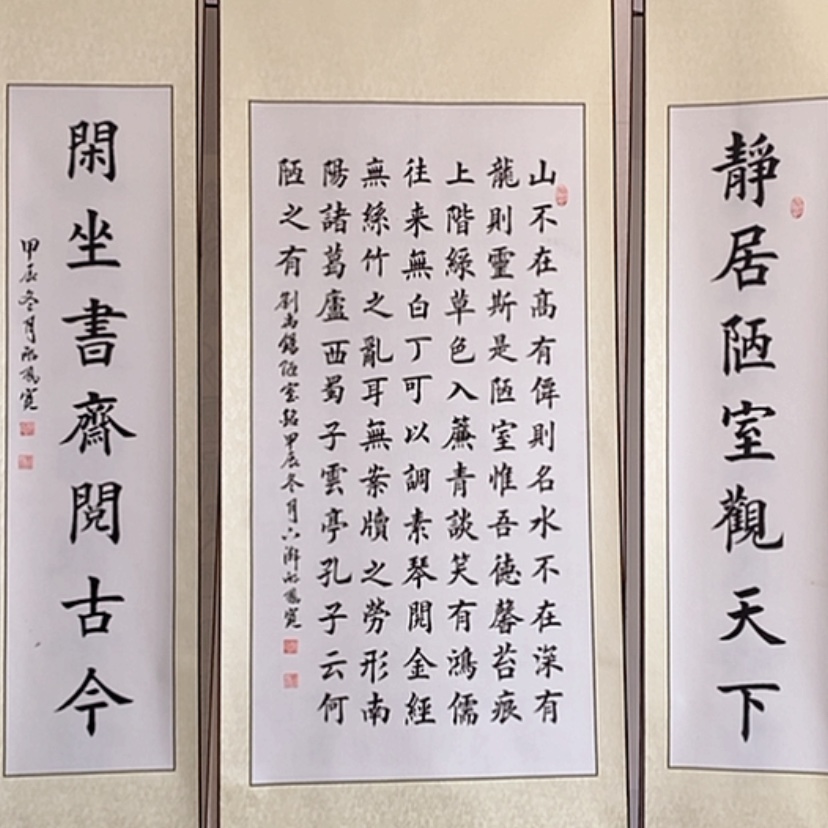 靜居陋室觀天下
山不在髙有僊則名水不在深有
龍則靈斯是陋室惟吾德馨苔痕
上階綠草色入簾青談笑有鴻儒
往来無白丁可以調素琴閱金經
無絲竹之亂耳無案牘之勞形南
陽諸葛廬西蜀子雲亭孔子云何
陋之有
劉禹錫陋室銘甲辰冬月六鳳寬
閑坐書齋閱古今
甲辰冬月鳳寬